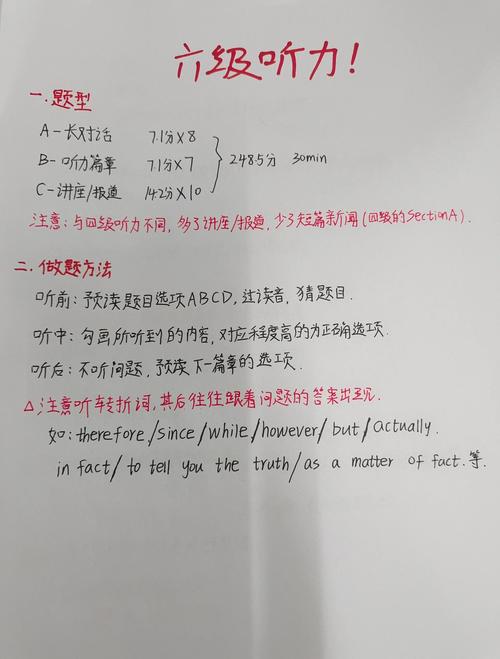 六级听力!
一.题型
A-长对话 7.1分×8
B-听力篇章 7.1分×7 248.5分 30min
C-讲座/报道 14.2分×10
注意:与四级听力不同,多了讲座/报道,少了短篇新闻(四级的SectionA).
二.做题方法
听前:预读题目选项ABCD,过读音,猜题目.
听中:勾画所听到的内容,对应程度高的为正确选项.
听后:不听问题,预读下一篇章的选项.
△注意听转折词,其后往往跟着问题的答案出现.
如:therefore/since/while/however/but/actually.
in fact/to tell you the truth/as a matter of fact.等.